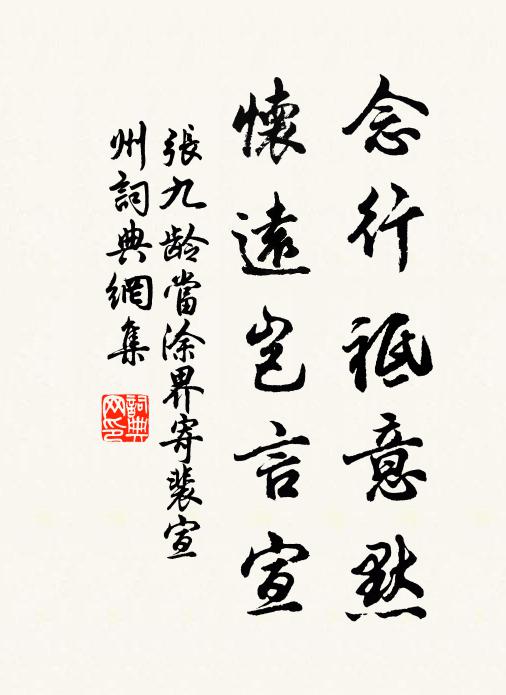 念行祗意默
懷遠豈言宣
張九龄當涂界寄裴宣
州詞典網集
詞典
网印